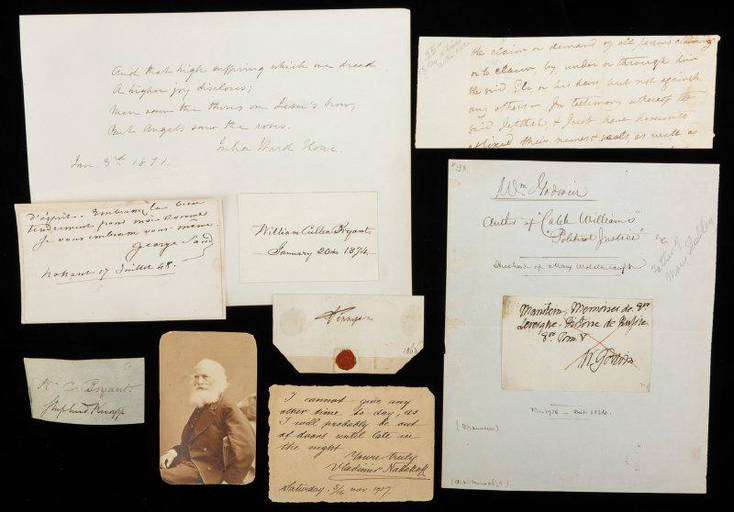 And that high suffering which we dread
A higher joy discloses;
Men saw the thorns on Jesus's brow,
But Angels saw the roses.
Julia Ward Howe.
Jan. 3rd 1871.
the claim or demand of all persons claiming
or to claim, by, under or through him
the said Eli or his heirs but not against
any others — In testimony whereof the
said & have hereunto
affixed their names & seals, as well as
d'esprit. Embrassez le bien
tendrement pour moi
Je vous embrasse vous même.
George Sand
Nohant 17 Juillet 48.
William Cullen Bryant.
January 20th 1874.
Wm Godwin
Author of "Caleb Williams"
"Political Justice" &c
Husband of Mary Wollstonecraft
Father of
Mary Shelley
Histoire de
W. Godwin
Tennyson
W. C. Bryant.
Shepherd Knapp
I cannot give any
other time to day, as
I will probably be out
of doors until late in
the night
Yours truly
Vladimir
Saturday. nov. 1907